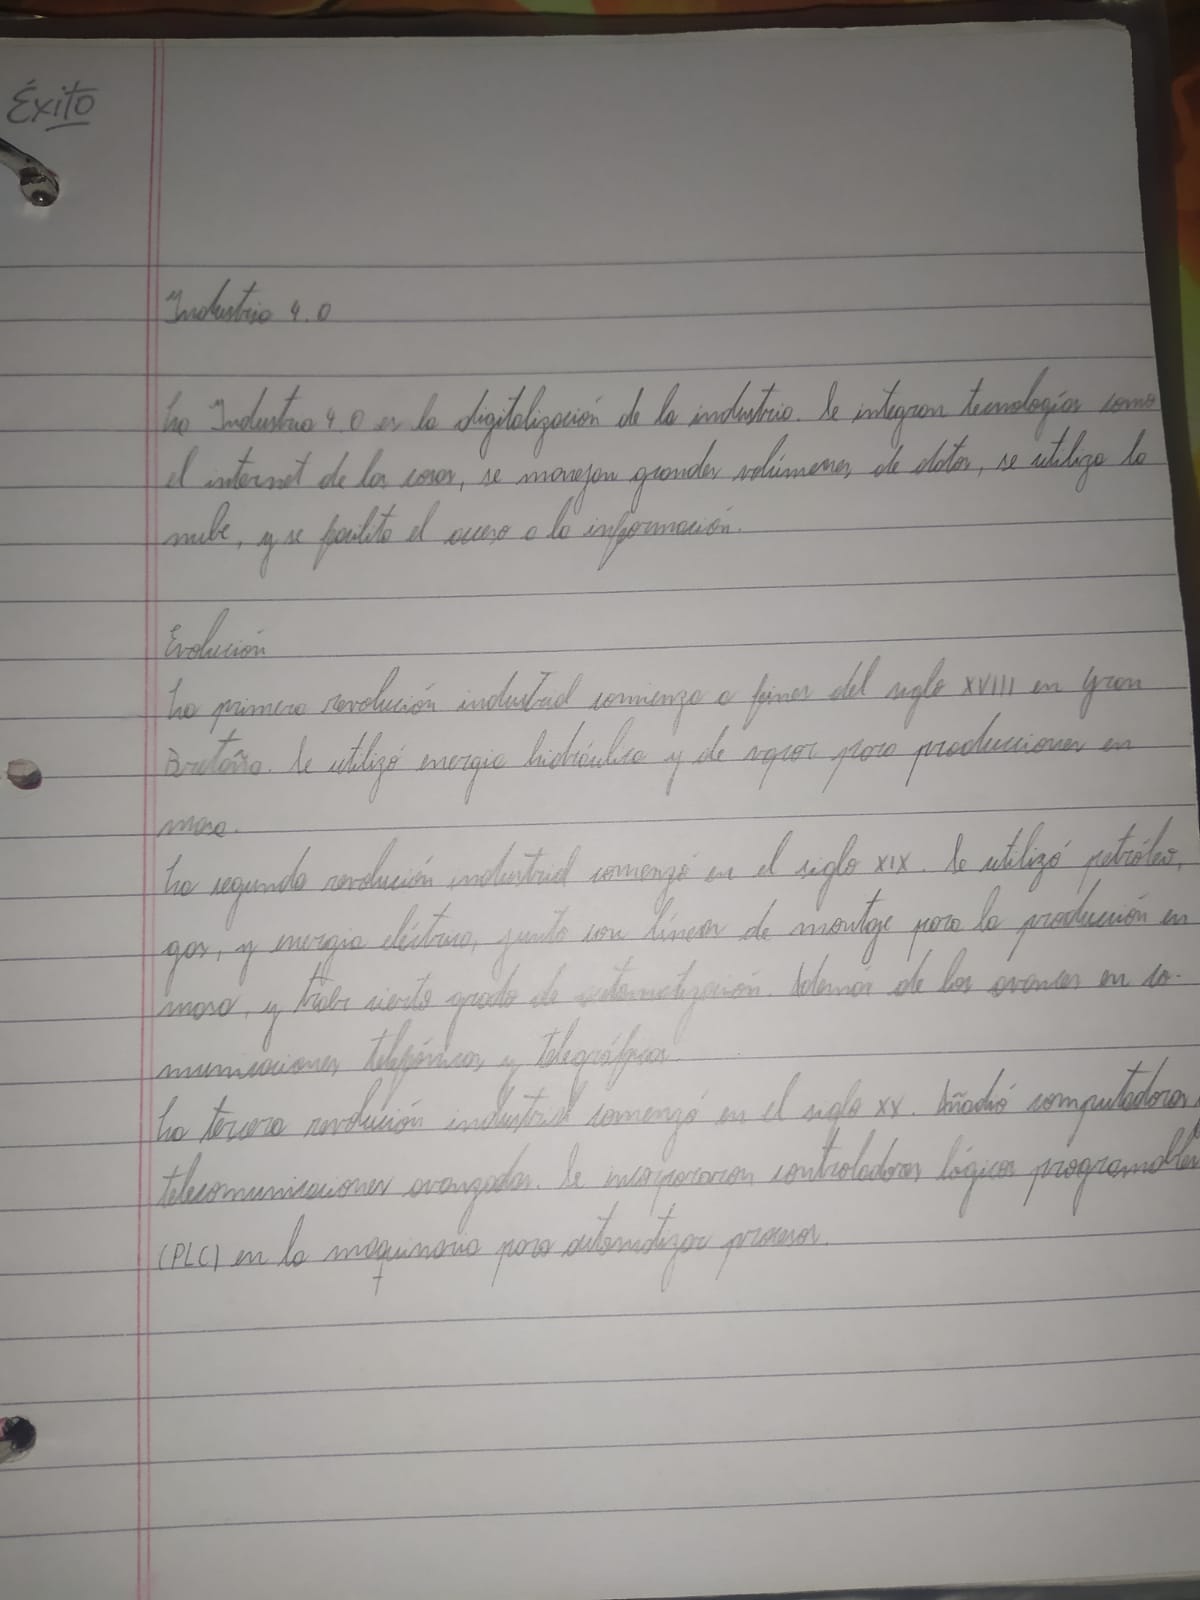 Éxito
Industria 4.0
La Industria 4.0 es la digitalización de la industria. Se integran tecnologías como
el internet de las cosas, se manejan grandes volúmenes de datos, se utiliza la
nube, y se facilita el acceso a la información.
Evolución
La primera revolución industrial comienza a fines del siglo XVIII en Gran
Bretaña. Se utilizó energía hidráulica y de vapor para producciones en
masa.
La segunda revolución industrial comenzó en el siglo XIX. Se utilizó petróleo,
gas, y energía eléctrica, junto con líneas de montaje para la producción en
masa, y cierto grado de automatización. Además de los avances en co-
municaciones telefónicas y telegráficas.
La tercera revolución industrial comenzó en el siglo XX. Añadió computadoras,
telecomunicaciones avanzadas. Se incorporaron controladores lógicos programables
(PLC) en la maquinaria para automatizar procesos.